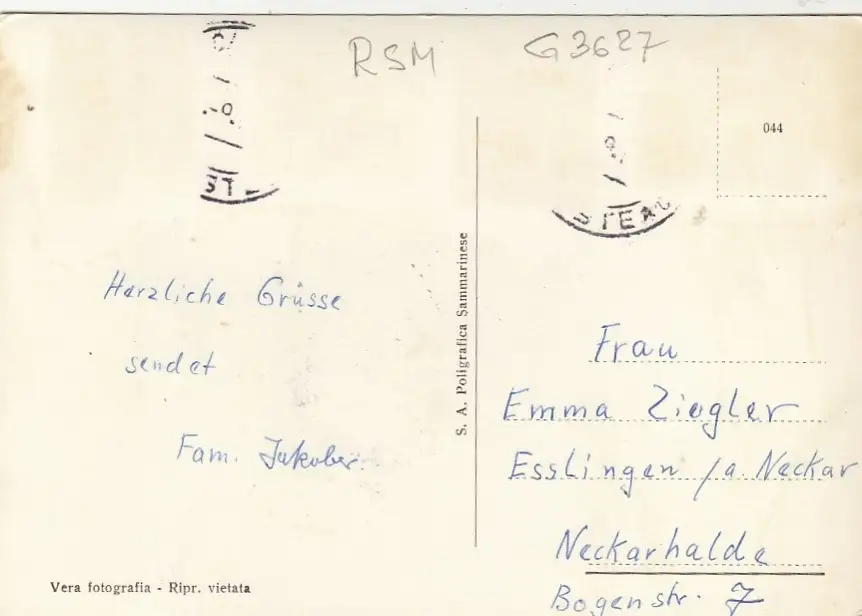 RSM G3627
044
Herzliche Grüsse
sendet
Fam.
S. A. Poligrafica Sammarinese
Frau
Emma Ziegler
Esslingen /a. Neckar
Neckarhalde
Bogenstr. 7
Vera fotografia - Ripr. vietata